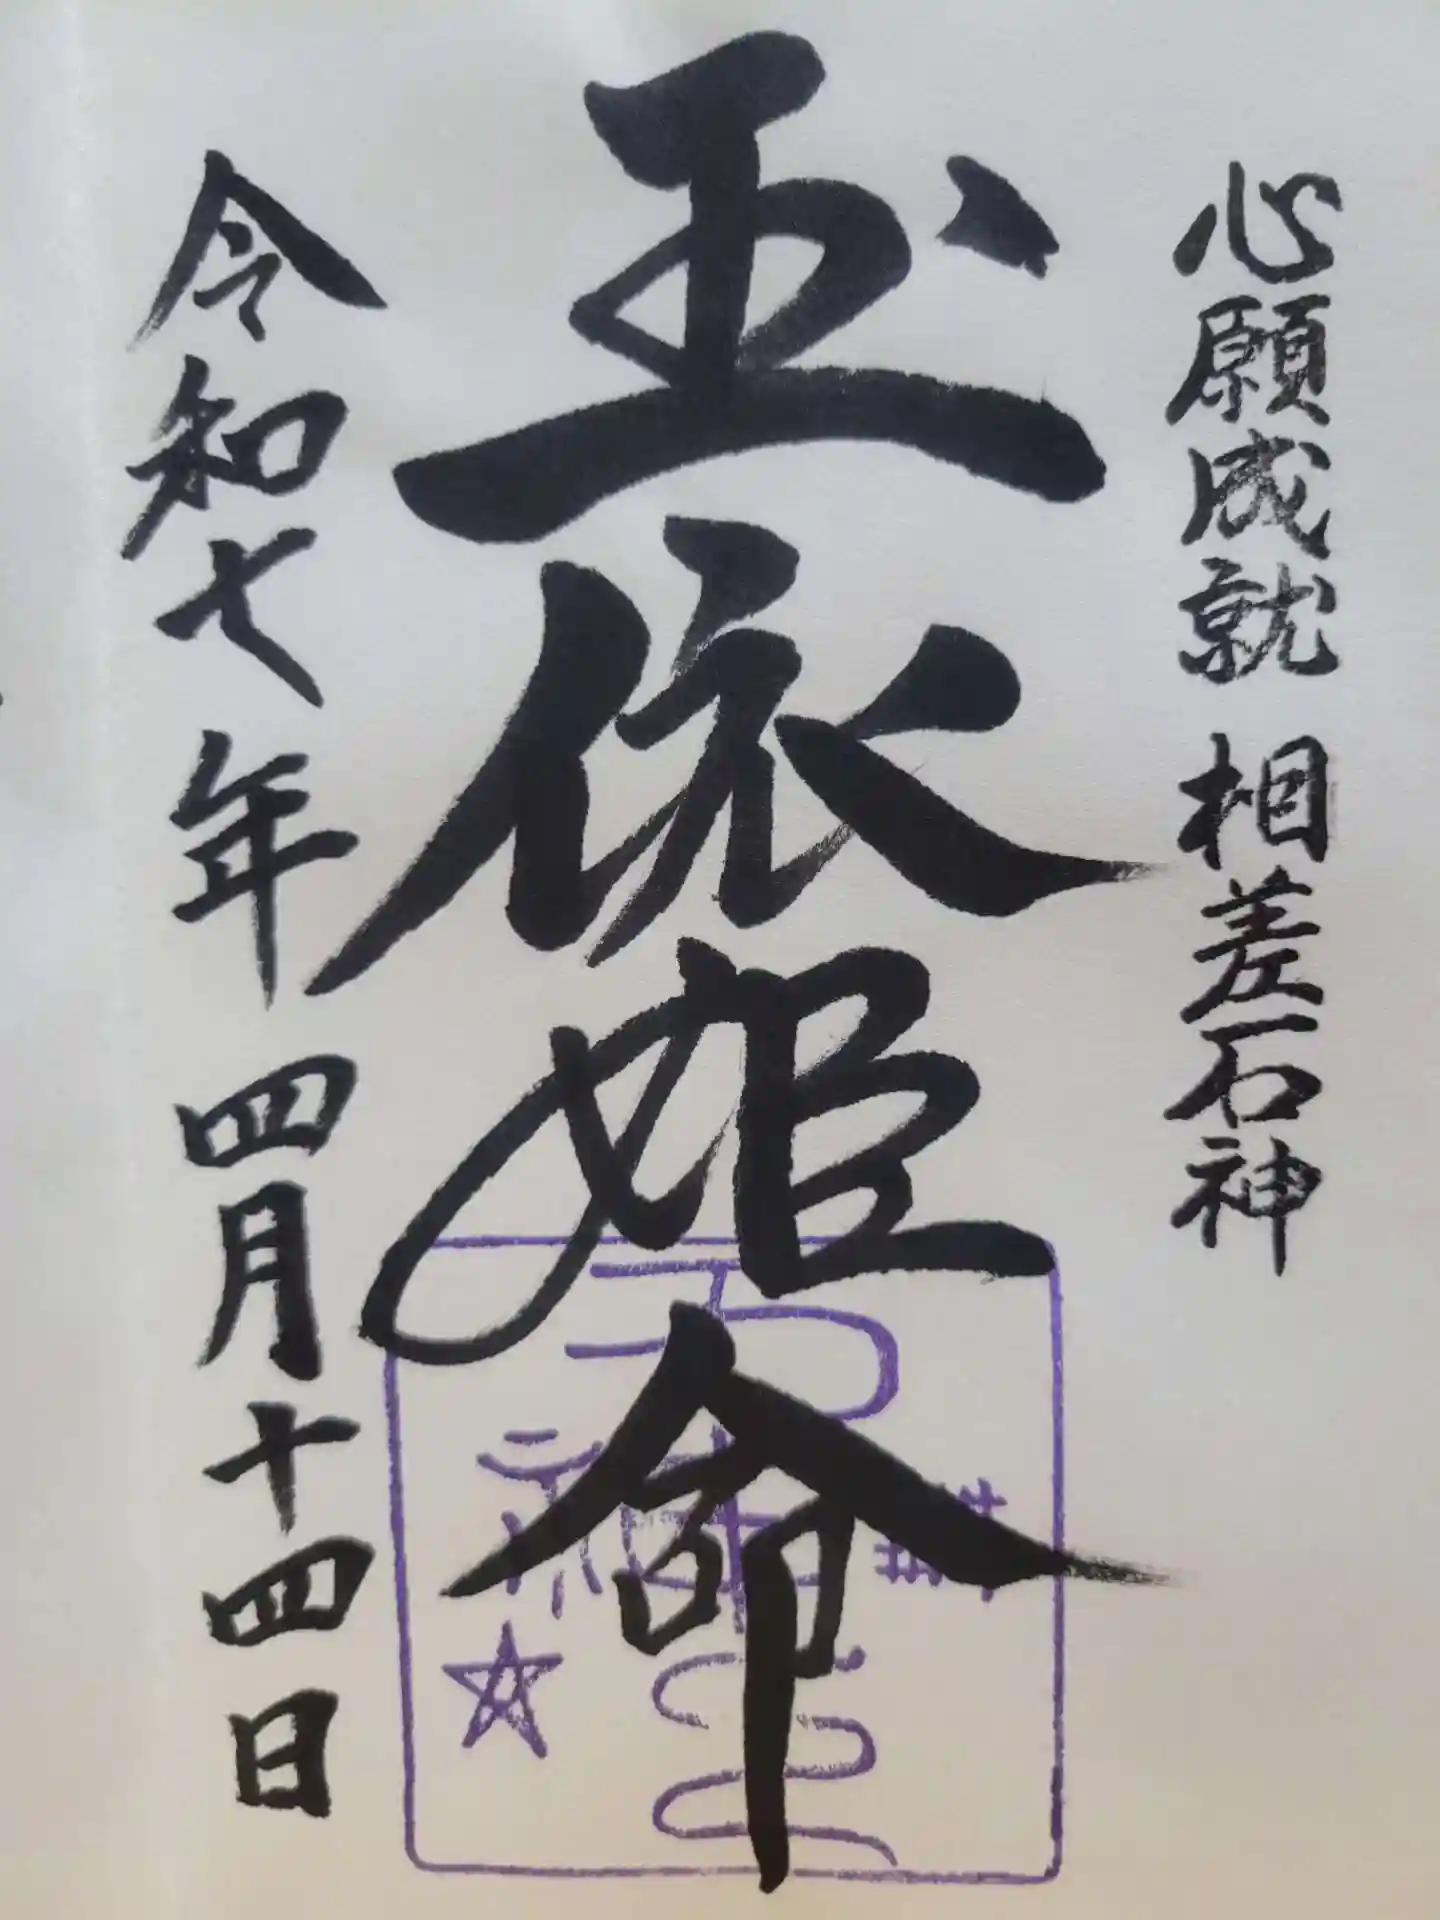 心願成就 相差石神
玉依姫命
令和七年 四月十四日
石神